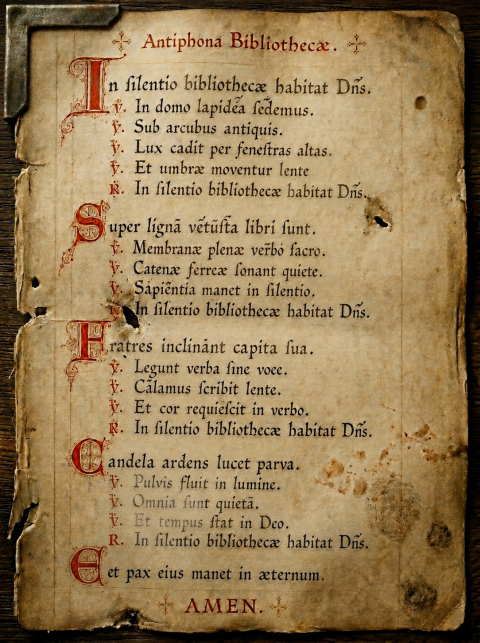 ✣ Antiphona Bibliothecæ. ✣
In ſilentio bibliothecæ habitat Dn̄s.
℣. In domo lapidēa ſēdemus.
℣. Sub arcubus antiquis.
℣. Lux cadit per feneſtras altas.
℣. Et umbræ moventur lente
℟. In ſilentio bibliothecæ habitat Dn̄s.
Super lignā vētūſta libri ſunt.
℣. Membranæ plenæ vēr̄bo ſacro.
℣. Catenæ ferreæ ſonant quiete.
℣. Sapiēntia manet in ſilentio.
In ſilentio bibliothecæ habitat Dn̄s.
Fratres inclīnānt capita ſua.
℣. Legunt verba ſine voce.
℣. Cālamus ſcribit lente.
℣. Et cor requieſcit in verbo.
℟. In ſilentio bibliothecæ habitat Dn̄s.
Candela ardens lucet parva.
℣. Pulvis fluit in lumine.
℣. Omnia ſunt quietā.
℣. Et tempus ſtat in Deo.
R. In ſilentio bibliothecæ habitat Dn̄s.
Eet pax eius manet in æternum.
✣ AMEN. ✣